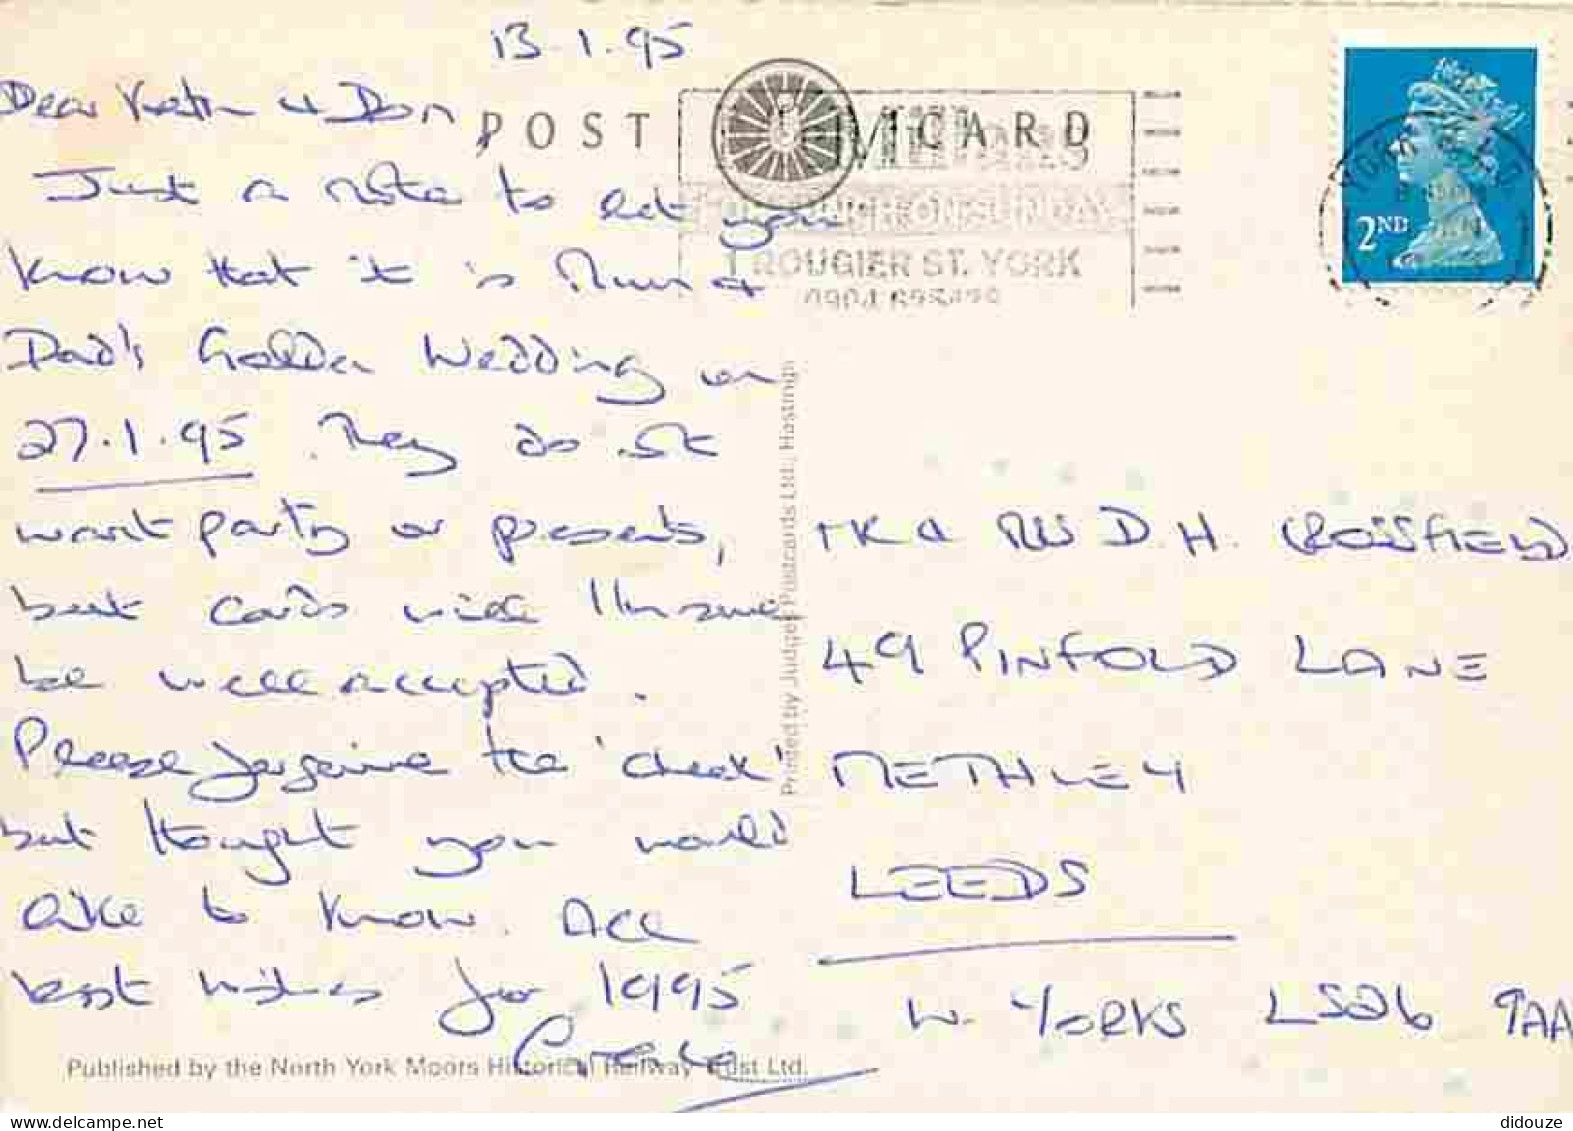 13.1.95
Dear Keith & Don,
POST CARD
Just a note to let you
know that it is Mum &
Dad's Golden Wedding on
27.1.95. They do not
want party or presents,
but cards will
be well accepted.
Please forgive the 'cheek'
but thought you would
like to know. All
best wishes for 1995
ROUGIER ST. YORK
2ND
Printed by Judges Postcards Ltd., Hastings
D. H.
49 PINFOLD LANE
METHLEY
LEEDS
W. YORKS LS26 9AA
Published by the North York Moors Historical Railway Trust Ltd.
didouze